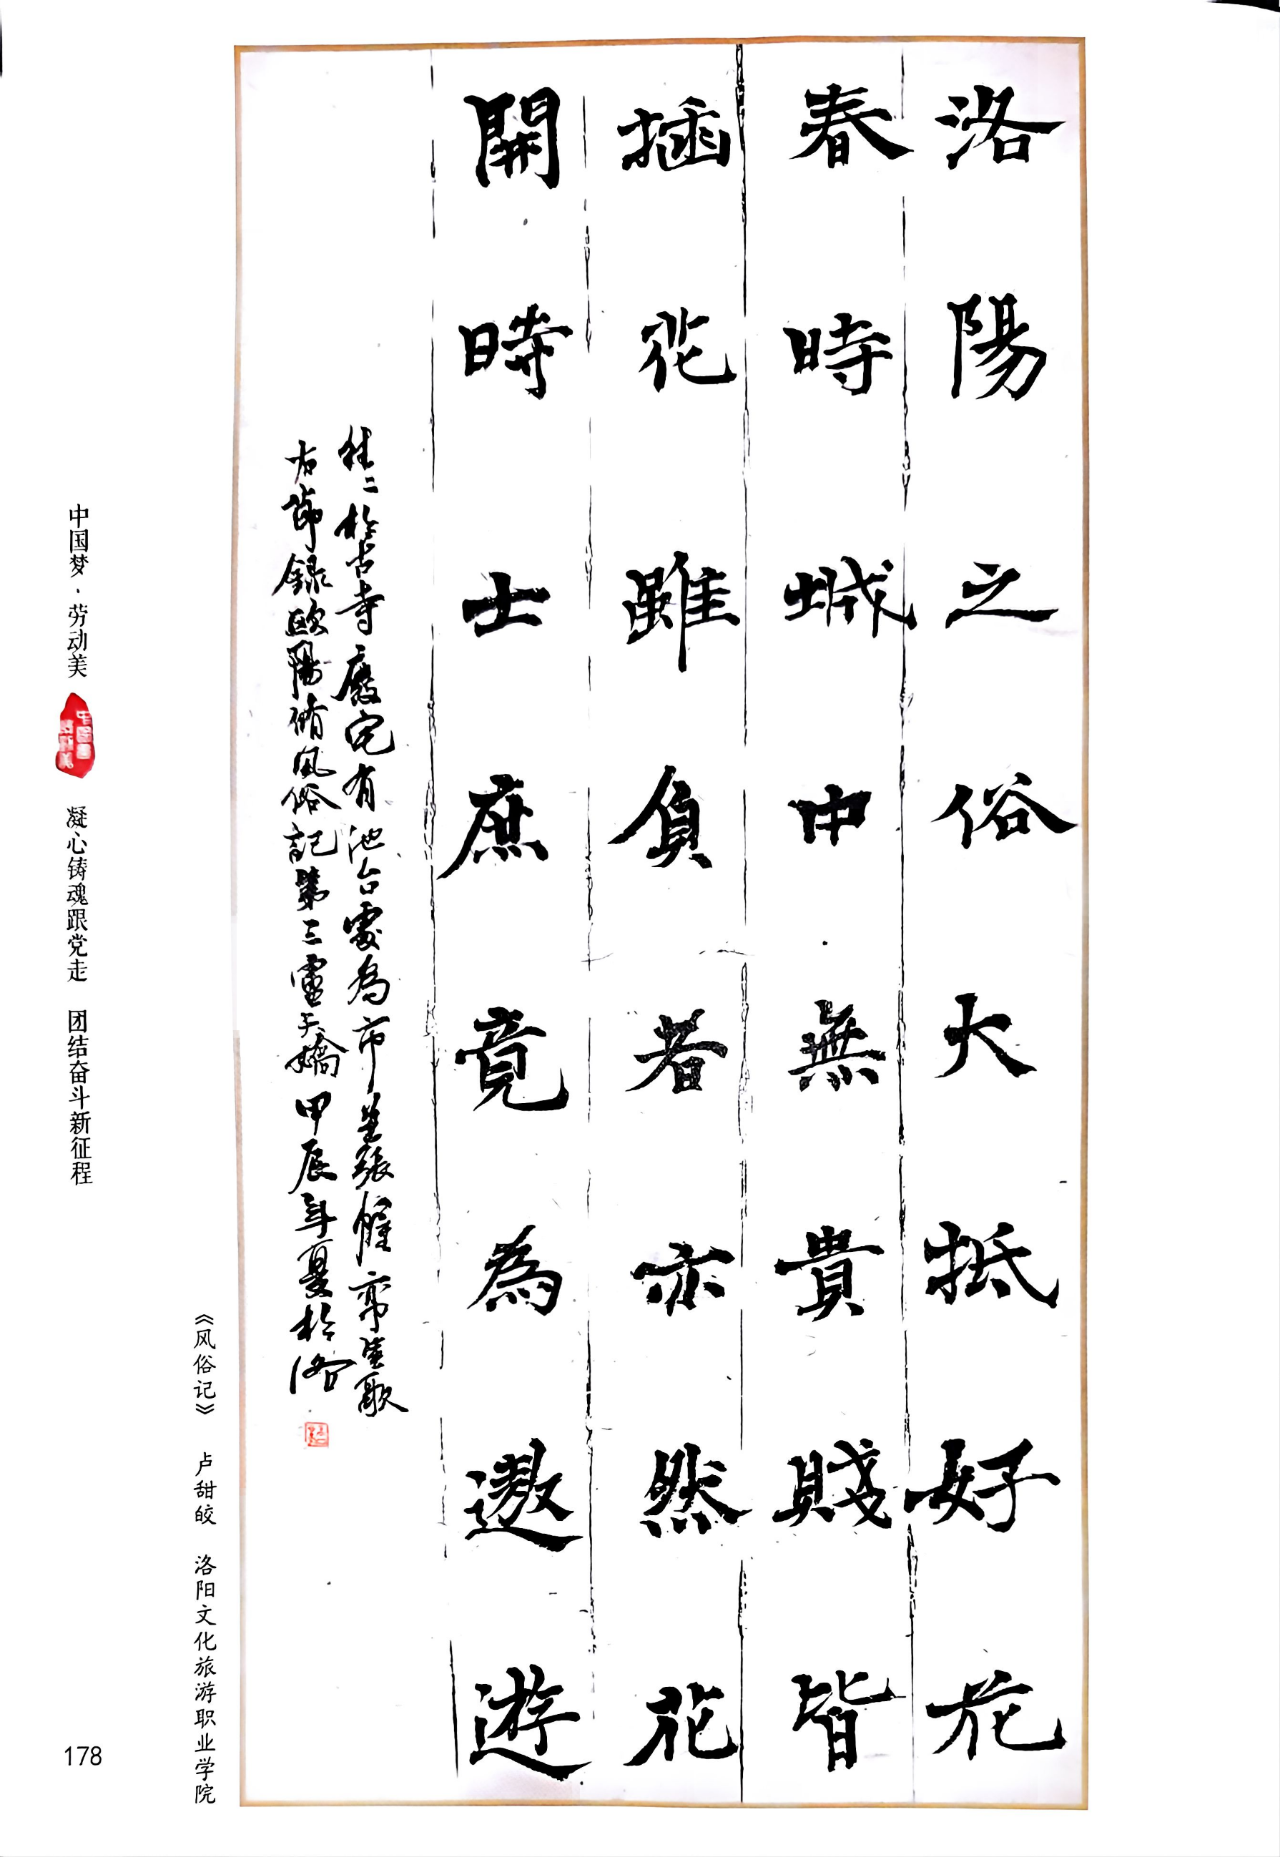 洛陽之俗大抵好花
春時城中無貴賤皆
插花雖負者亦然花
開時士庶竟為遨遊
往二於古寺廢宅有池台處為市並張幄帟笙歌
右節錄歐陽脩風俗記第三
甲辰年夏於洛
《风俗记》 卢甜皎 洛阳文化旅游职业学院
中国梦·劳动美
凝心铸魂跟党走 团结奋斗新征程
178